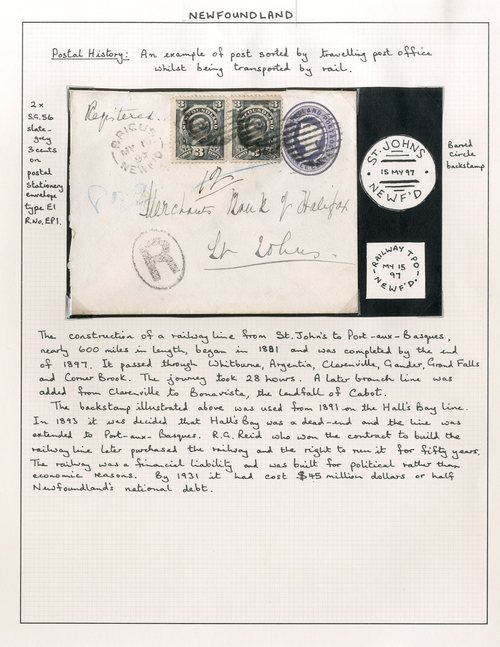 NEWFOUNDLAND
Postal History: An example of post sorted by travelling post office
whilst being transported by rail.
2 x
S.G. 56
slate-
grey
3 cents
on
postal
stationery
envelope
type E1
R.No. EP1.
Registered
3 3 3
BRIGUS
MY 1
97
NEWF'D
Merchants Bank of Halifax
St Johns.
R
ST. JOHNS
15 MY 97
NEWF'D
Bared
circle
backstamp
RAILWAY TPO
MY 15
97
NEWF'D.
The construction of a railway line from St. John's to Port-aux-Basques,
nearly 600 miles in length, began in 1881 and was completed by the end
of 1897. It passed through Whitbourne, Argentia, Clarenville, Gander, Grand Falls
and Corner Brook. The journey took 28 hours. A later branch line was
added from Clarenville to Bonavista, the landfall of Cabot.
The backstamp illustrated above was used from 1891 on the Hall's Bay line.
In 1893 it was decided that Hall's Bay was a dead-end and the line was
extended to Port-aux-Basques. R.G. Reid who won the contract to build the
railway line later purchased the railway and the right to run it for fifty years.
The railway was a financial liability and was built for political rather than
economic reasons. By 1931 it had cost $45 million dollars or half
Newfoundland's national debt.